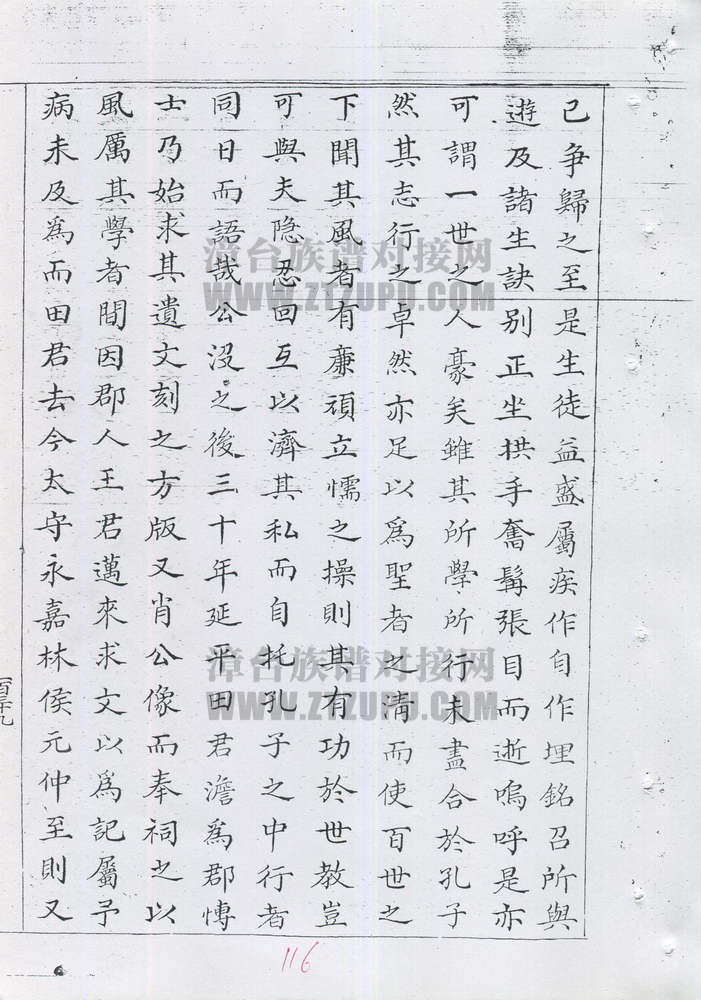 己争歸之至是生徒益盛屬疾作自作埋銘召所與
遊及諸生訣别正坐拱手奮髯張目而逝嗚呼是亦
可謂一世之人豪矣雖其所學所行未盡合於孔子
然其志行之卓然亦足以爲聖者之清而使百世之
下聞其風者有廉頑立懦之操則其有功於世教豈
可與夫隐忍回互以濟其私而自托孔子之中行者
同日而語哉公沒之後三十年延平田君澹爲郡慱
士乃始求其遺文刻之方版又肖公像而奉祠之以
風厲其學者間因郡人王君邁來求文以爲記屬予
病未及爲而田君去今太守永嘉林侯元仲至則又
一百三十九
漳台族谱对接网
WWW.ZTZUPU.COM
漳台族谱对接网
WWW.ZTZUPU.COM
116